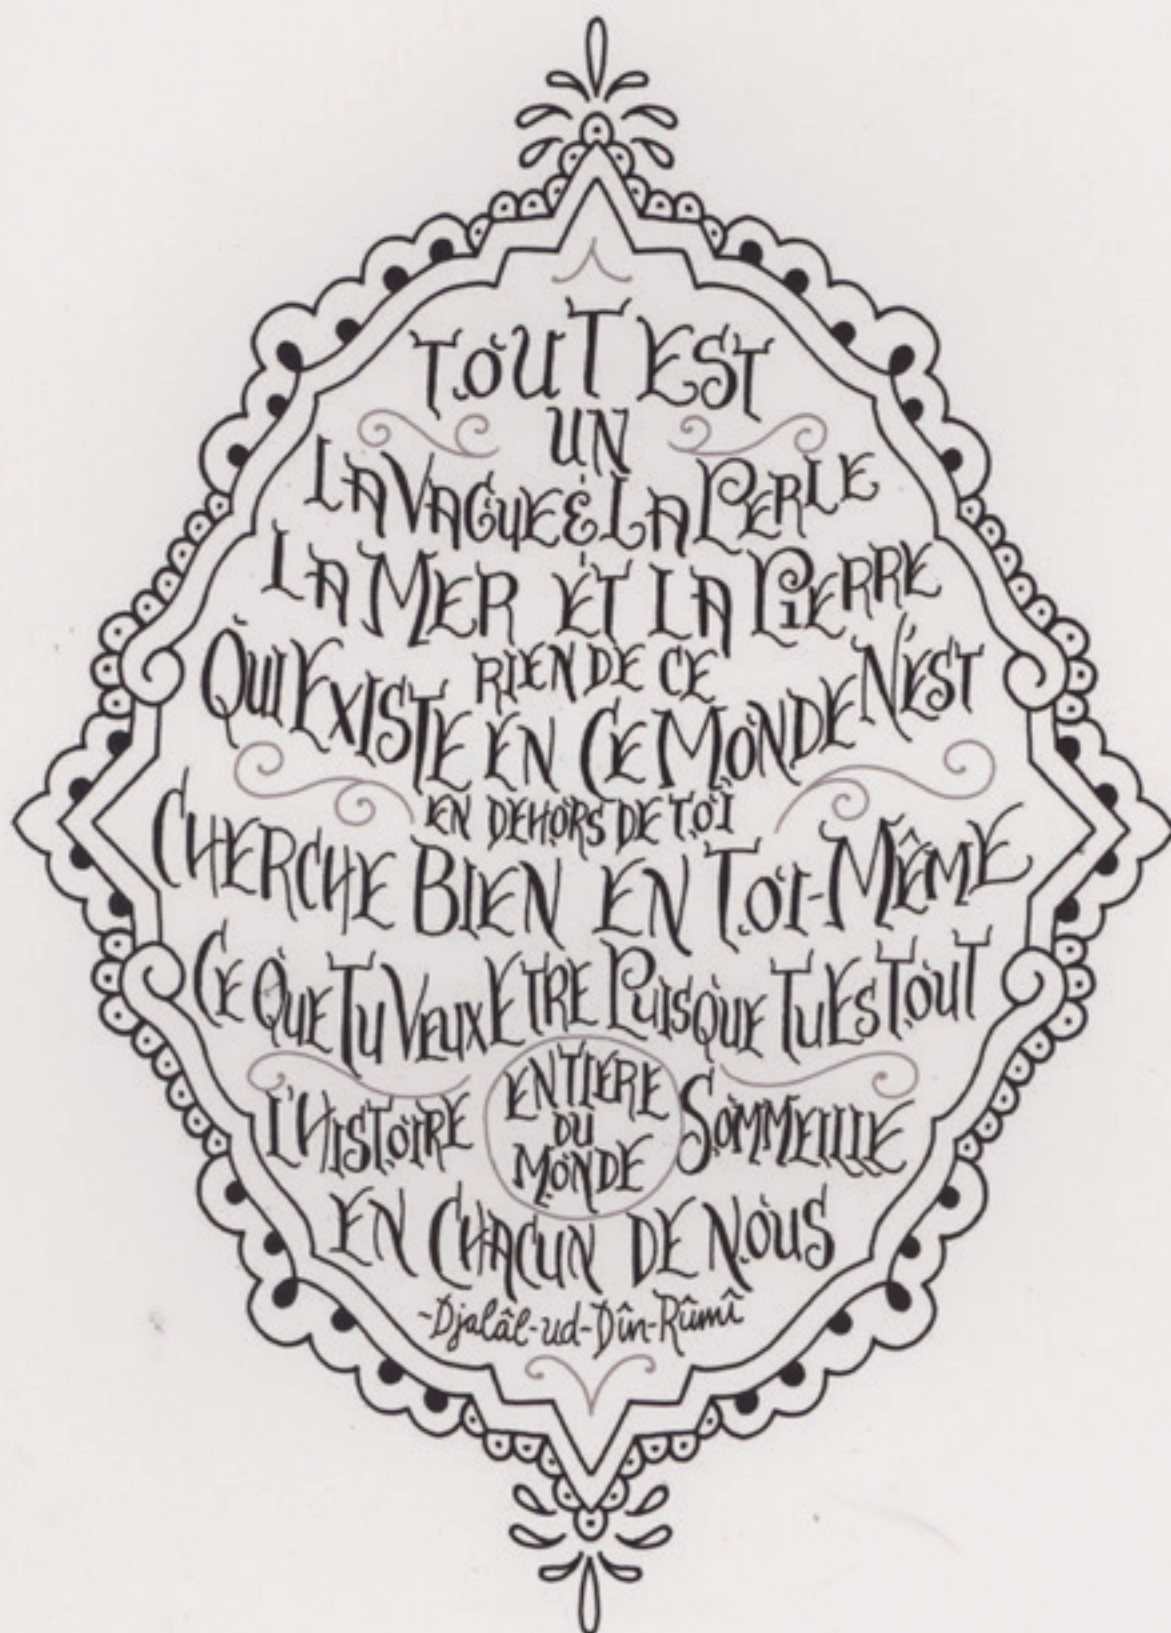 TOUT EST
UN
LA VAGUE & LA PERLE
LA MER ET LA PIERRE
RIEN DE CE
QUI EXISTE EN CE MONDE N'EST
EN DEHORS DE TOI
CHERCHE BIEN EN TOI-MÊME
CE QUE TU VEUX ETRE PUISQUE TU ES TOUT
L'HISTOIRE ENTIERE DU MONDE SOMMEILLE
EN CHACUN DE NOUS
-Djalâl-ud-Dîn-Rûmî